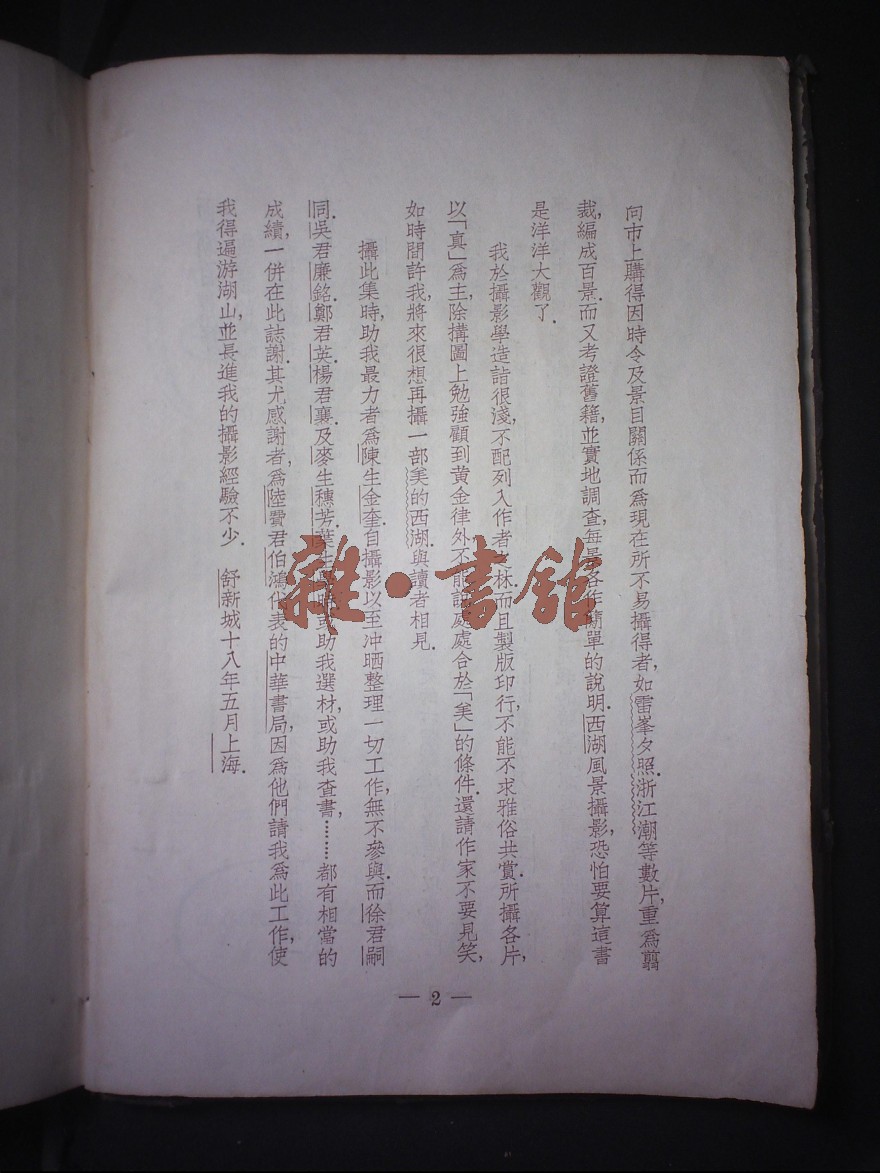 向市上購得因時令及景目關係而爲現在所不易攝得者,如雷峯夕照.浙江潮等數片,重爲翦
裁,編成百景.而又考證舊籍,並實地調查,每景各作簡單的說明.西湖風景攝影,恐怕要算這書
是洋洋大觀了.
我於攝影學造詣很淺,不配列入作者之林.而且製版印行,不能不求雅俗共賞.所攝各片,
以「真」爲主,除搆圖上勉強顧到黃金律外,不能說處處合於「美」的條件.還請作家不要見笑,
如時間許我,將來很想再攝一部美的西湖與讀者相見.
攝此集時,助我最力者爲陳生金奎.自攝影以至沖晒整理一切工作,無不參與.而徐君嗣
同.吳君廉銘.鄭君英.楊君襄.及麥生穗芳.葉生 或助我選材,或助我查書,………都有相當的
成績,一併在此誌謝.其尤感謝者,爲陸費君伯鴻代表的中華書局,因爲他們請我爲此工作,使
我得遍游湖山,並長進我的攝影經驗不少. 舒新城十八年五月上海.
— 2 —
雜·書館